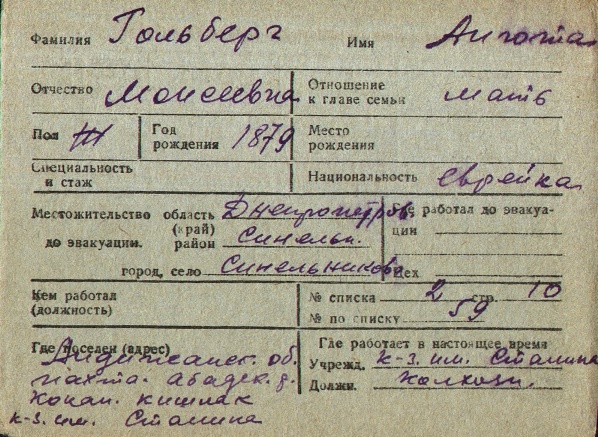 Фамилия Гольберг Имя
Отчество Моисеевна Отношение к главе семьи мать
Пол Ж Год рождения 1879 Место рождения
Специальность и стаж Национальность еврейка
Местожительство область Днепропетров. Где работал до эвакуа-
(край) ции
до эвакуации. район Синельн.
город, село Синельниково Цех
Кем работал № списка 2 стр. 10
(должность) № по списку 59
Где поселен (адрес) Где работает в настоящее время
Андижанск. об. Учрежд. к-з. им. Сталина
Пахта. абадск. р. Должн. колхозн.
кишлак
к-з. им. Сталина